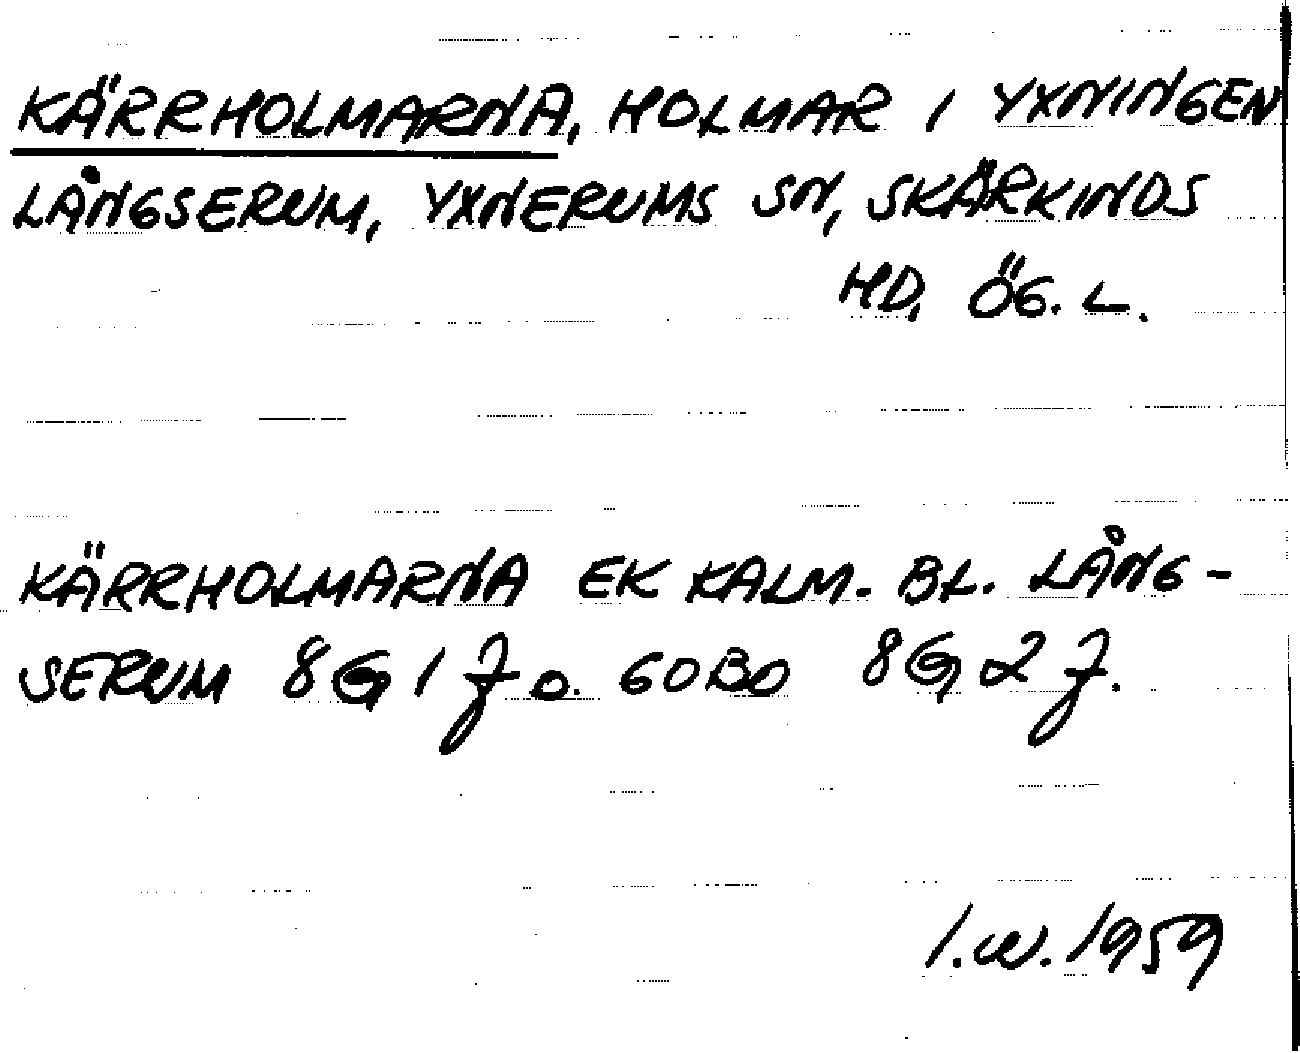 KÄRRHOLMARNA, HOLMAR I YXNINGEN
LÅNGSERUM, YXNERUMS SN, SKÄRKINDS
HD, ÖG. L.
KÄRRHOLMARNA EK KALM. BL. LÅNG-
SERUM 8G 1 J o. GOBO 8G 2 J.
I.W. 1959